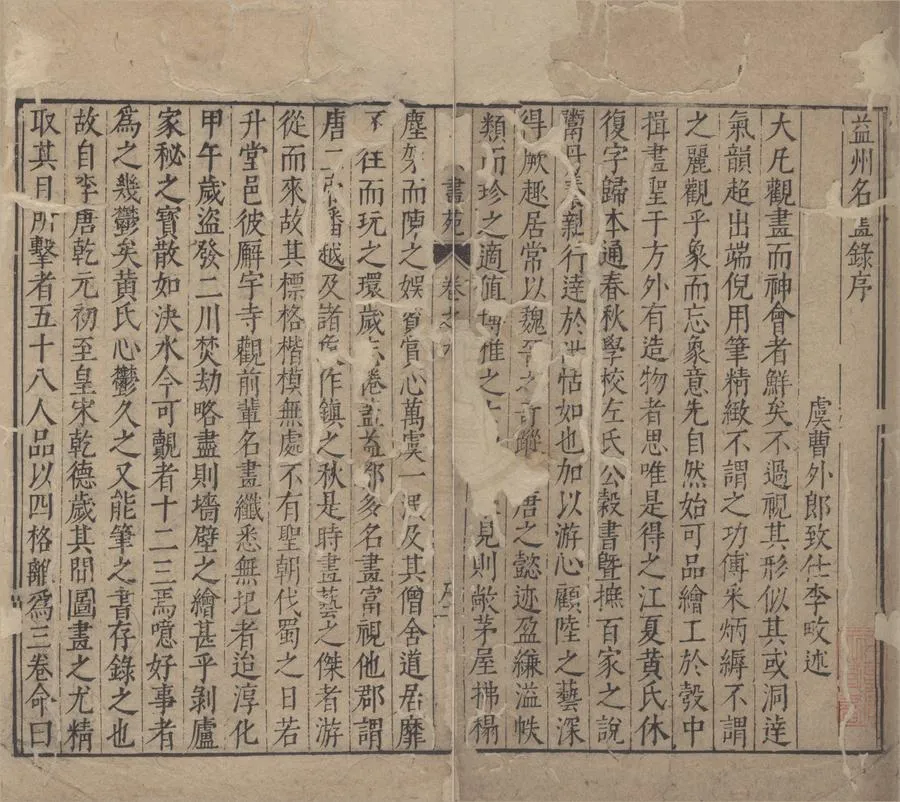 益州名畫錄序
虞曹外郎致仕李畋述
大凡觀畫而神會者鮮矣不過視其形似其或洞達
氣韻超出端倪用筆精緻不謂之功傅采炳縟不謂
之麗觀乎象而忘象意先自然始可品繪工於彀中
揖畫聖于方外有造物者思唯是得之江夏黄氏休
復字歸本通春秋學校左氏公穀書暨摭百家之說
鬻丹養親行達於世怙如也加以游心顧陸之藝深
得厥趣居常以魏晉之奇蹤 唐之懿迹盈縑溢帙
類而珍之適值 博雅之 見則敞茅屋拂榻
畫苑 卷之九
塵 而陳之娛賓賞心萬虞一 及其僧舍道居靡
不往而玩之環歲忘倦蓋益都多名畫富視他郡謂
唐二帝播越及諸 作鎮之秋是時畫藝之傑者游
從而來故其標格楷模無處不有聖朝伐蜀之日若
升堂邑彼廨宇寺觀前輩名畫纖悉無圮者迨淳化
甲午歲盜發二川焚劫略盡則墻壁之繪甚乎剝廬
家秘之寶散如決水今可覩者十二三焉噫好事者
爲之幾鬱矣黄氏心鬱久之又能筆之書存錄之也
故自李唐乾元初至皇宋乾德歲其間圖畫之尤精
取其目所擊者五十八人品以四格離爲三卷命曰